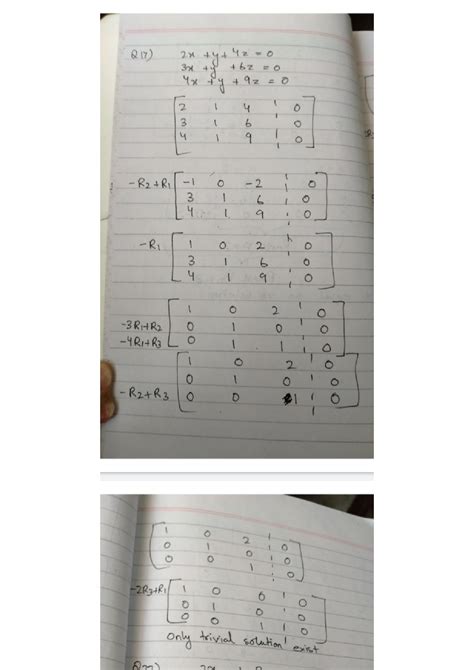 Q17) 2x + y + 4z = 0
3x + y + 6z = 0
4x + y + 9z = 0
2 1 4 0
3 1 6 0
4 1 9 0
-R2+R1 -1 0 -2 0
3 1 6 0
4 1 9 0
-R1 1 0 2 0
3 1 6 0
4 1 9 0
1 0 2 0
-3R1+R2 0 1 0 0
-4R1+R3 0 1 1 0
1 0 2 0
0 1 0 0
-R2+R3 0 0 1 0
1 0 2 0
0 1 0 0
0 0 1 0
-2R3+R1 1 0 0 0
0 1 0 0
0 0 1 0
only trivial solution exist